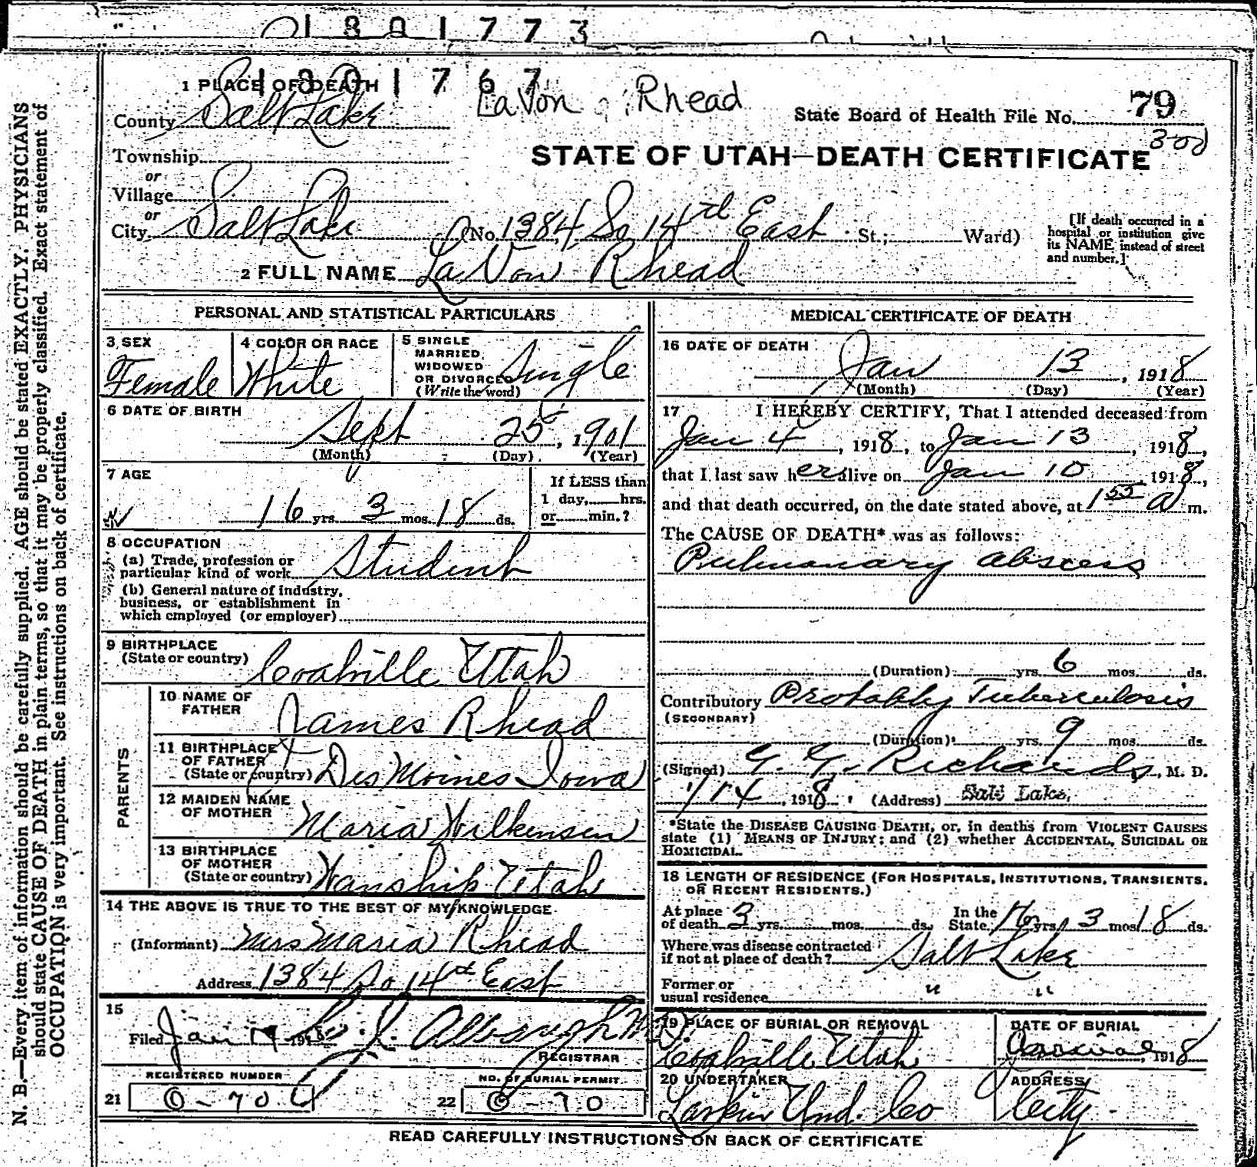 1801773
1801767
LaVon Rhead
1 PLACE OF DEATH
County Salt Lake
State Board of Health File No. 79
300
STATE OF UTAH—DEATH CERTIFICATE
Township
or
Village
or
City Salt Lake No. 1384 So 14th East St.; Ward)
[If death occurred in a hospital or institution give its NAME instead of street and number.]
2 FULL NAME La Von Rhead
PERSONAL AND STATISTICAL PARTICULARS
3 SEX
Female
4 COLOR OR RACE
White
5 SINGLE
MARRIED,
WIDOWED
OR DIVORCED
(Write the word)
Single
6 DATE OF BIRTH
Sept 25, 1901
(Month) (Day) (Year)
7 AGE
16 yrs. 3 mos. 18 ds.
If LESS than
1 day, hrs.
or min.?
8 OCCUPATION
(a) Trade, profession or
particular kind of work Student
(b) General nature of industry,
business, or establishment in
which employed (or employer)
9 BIRTHPLACE
(State or country) Coalville Utah
PARENTS
10 NAME OF
FATHER James Rhead
11 BIRTHPLACE
OF FATHER
(State or country) Des Moines Iowa
12 MAIDEN NAME
OF MOTHER Maria Wilkensen
13 BIRTHPLACE
OF MOTHER
(State or country) Wanship Utah
14 THE ABOVE IS TRUE TO THE BEST OF MY KNOWLEDGE
(Informant) Mrs Maria Rhead
Address 1384 So 14th East
15
Filed Jan 191
REGISTRAR
REGISTERED NUMBER
21 0-70
NO. OF BURIAL PERMIT.
22 0-70
MEDICAL CERTIFICATE OF DEATH
16 DATE OF DEATH
Jan 13, 1918
(Month) (Day) (Year)
17 I HEREBY CERTIFY, That I attended deceased from
Jan 4, 1918, to Jan 13, 1918,
that I last saw her alive on Jan 10 1918,
and that death occurred, on the date stated above, at 1 55 A m.
The CAUSE OF DEATH* was as follows:
Pulmonary abscess
(Duration) yrs. 6 mos. ds.
Contributory Probably Tuberculosis
(SECONDARY)
(Duration) yrs. 9 mos. ds.
(Signed) G. G. Richards, M. D.
1/14, 1918 (Address) Salt Lake,
*State the DISEASE CAUSING DEATH, or, in deaths from VIOLENT CAUSES
state (1) MEANS OF INJURY; and (2) whether ACCIDENTAL, SUICIDAL OR
HOMICIDAL.
18 LENGTH OF RESIDENCE (FOR HOSPITALS, INSTITUTIONS, TRANSIENTS,
OR RECENT RESIDENTS.)
At place
of death 3 yrs. mos. ds. In the
State 16 yrs. 3 mos. 18 ds.
Where was disease contracted
if not at place of death? Salt Lake
Former or
usual residence " "
19 PLACE OF BURIAL OR REMOVAL
Coalville Utah
DATE OF BURIAL
1918
20 UNDERTAKER
Larkin Und. Co
ADDRESS
City
READ CAREFULLY INSTRUCTIONS ON BACK OF CERTIFICATE
N. B.—Every item of information should be carefully supplied. AGE should be stated EXACTLY. PHYSICIANS
should state CAUSE OF DEATH in plain terms, so that it may be properly classified. Exact statement of
OCCUPATION is very important. See instructions on back of certificate.